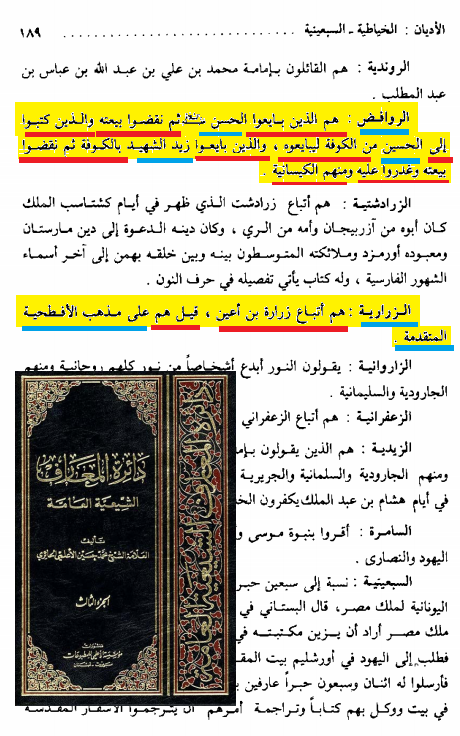 الأديان : الخياطية - السبعينية ١٨٩
الروندية : هم القائلون بإمامة محمد بن علي بن عبد الله بن عباس بن
عبد المطلب .
الروافض : هم الذين بايعوا الحسن ثم نقضوا بيعته والذين كتبوا
إلى الحسين من الكوفة ليبايعوه ، والذين بايعوا زيد الشهيد بالكوفة ثم نقضوا
بيعته وغدروا عليه ومنهم الكيسانية .
الزرادشتية : هم أتباع زرادشت الذي ظهر في أيام كشتاسب الملك
كان أبوه من آزربيجان وأمه من الري ، وكان دينه الدعوة إلى دين مارستان
ومعبوده أورمزد وملائكته المتوسطون بينه وبين خلقه بهمن إلى آخر أسماء
الشهور الفارسية ، وله كتاب يأتي تفصيله في حرف النون .
الزرارية : هم أتباع زرارة بن أعين ، قيل هم على مذهب الأفطحية
المتقدمة .
الزاروانية : يقولون النور أبدع أشخاصاً من نور كلهم روحانية ومنهم
الجارودية والسليمانية .
الزعفرانية : هم أتباع الزعفراني
الزيدية : هم الذين يقولون
ومنهم الجارودية والسلمانية والجريرية
في أيام هشام بن عبد الملك يكفرون
السامرة : أقروا بنبوة موسى
اليهود والنصارى .
السبعينية : نسبة إلى سبعين حبر
اليونانية لملك مصر، قال البستاني في
ملك مصر أراد أن يزين مكتبته في
فطلب إلى اليهود في أورشليم بيت
فأرسلوا له اثنان وسبعون حبراً عارفين
في بيت ووكل بهم كتاباً وتراجمة أمرهم أن يترجموا الأسفار المقدسة
دائرة المعارف
الشيعية العامة
تأليف
العلامة الشيخ محمد حسين الأعلمي الحائري
الجزء الثالث
منشورات
مؤسسة الأعلمي للمطبوعات
بيروت - لبنان